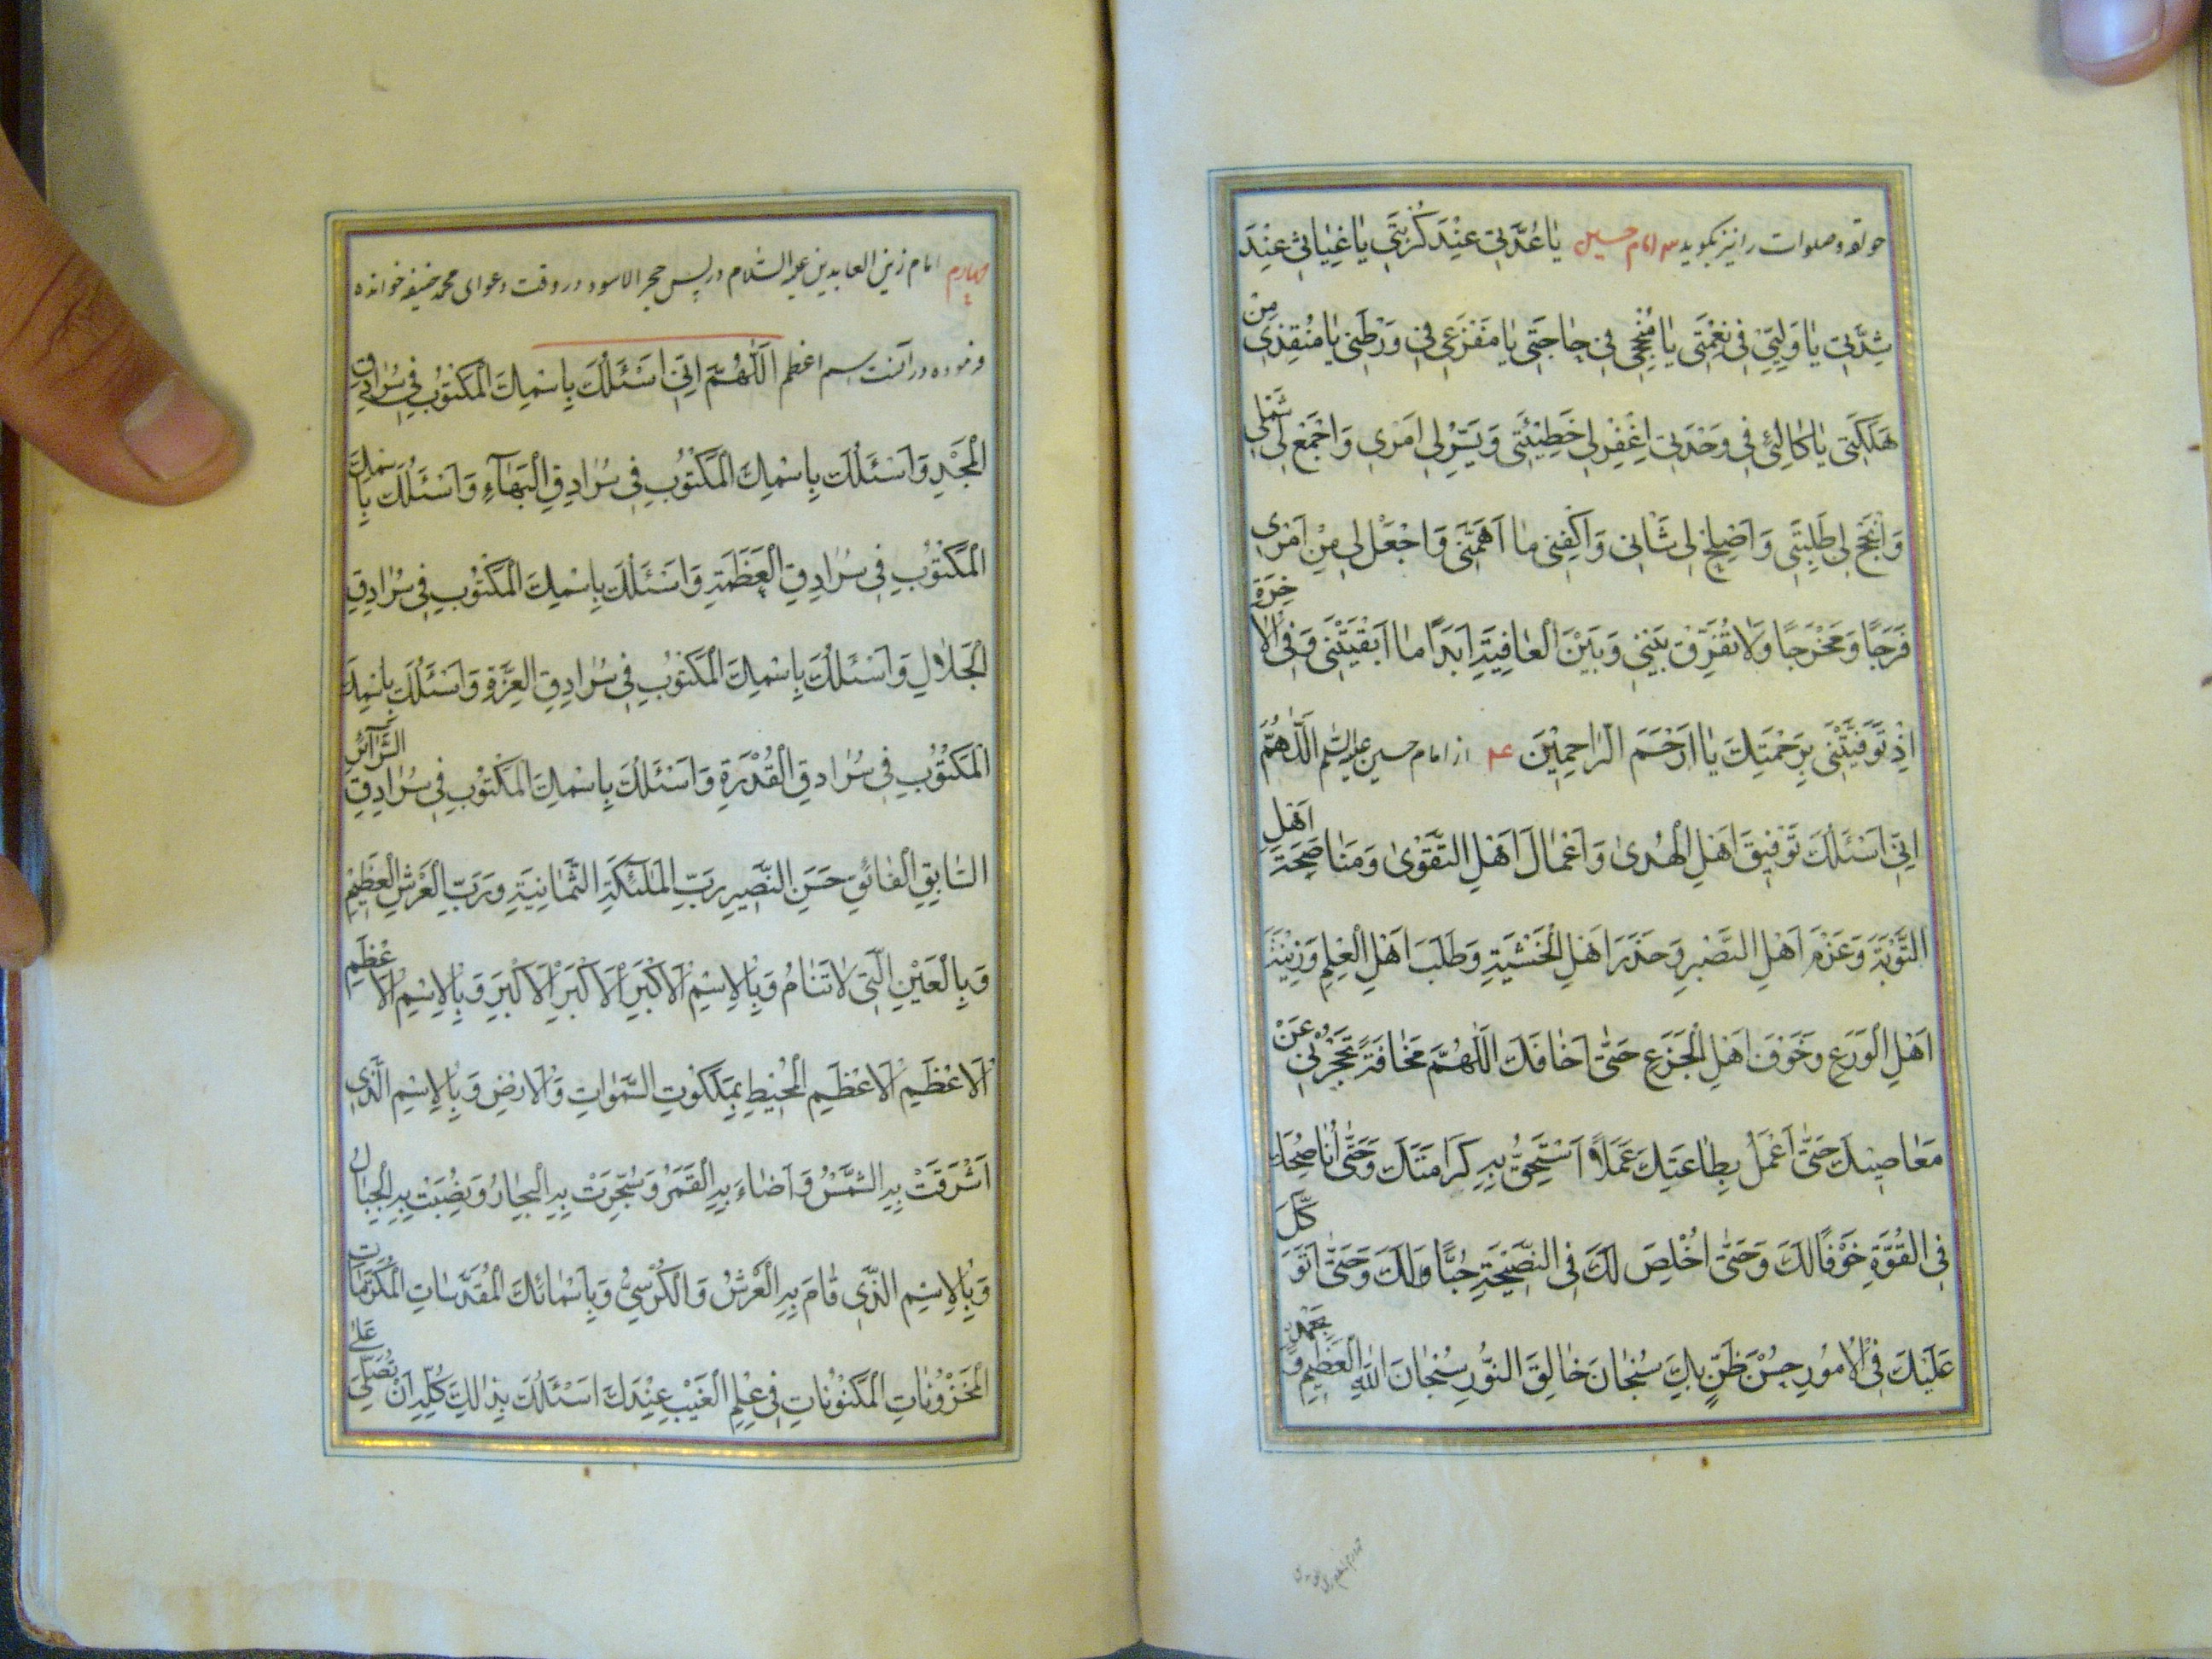 حولقه وصلوات را نیز بکوید سه امام حسین يَا عُدَّتِي عِنْدَ كُرْبَتِي يَا غِيَاثِي عِنْدَ
شِدَّتِي يَا وَلِيِّي فِي نِعْمَتِي يَا مُنْجِحِي فِي حَاجَتِي يَا مَفْزَعِي فِي وَرْطَتِي يَا مُنْقِذِي مِنْ
هَلَكَتِي يَا كَالِئِي فِي وَحْدَتِي اِغْفِرْ لِي خَطِيئَتِي وَيَسِّرْ لِي اَمْرِي وَاجْمَعْ لِي شَمْلِي
وَاَنْجِحْ لِي طَلِبَتِي وَاَصْلِحْ لِي شَانِي وَاكْفِنِي مَا اَهَمَّنِي وَاجْعَلْ لِي مِنْ اَمْرِي
فَرَجًا وَمَخْرَجًا وَلَا تُفَرِّقْ بَيْنِي وَبَيْنَ الْعَافِيَةِ اَبَدًا مَا اَبْقَيْتَنِي وَفِي الْاخِرَةِ
اِذْ تَوَفَّيْتَنِي بِرَحْمَتِكَ يَا اَرْحَمَ الرَّاحِمِينَ از امام حسین علیه السّلم اَللّٰهُمَّ
اِنِّي اَسْئَلُكَ تَوْفِيقَ اَهْلِ الْهُدَىٰ وَاَعْمَالَ اَهْلِ التَّقْوَىٰ وَمُنَاصَحَةَ اَهْلِ
التَّوْبَةِ وَعَزْمَ اَهْلِ الصَّبْرِ وَحَذَرَ اَهْلِ الْخَشْيَةِ وَطَلَبَ اَهْلِ الْعِلْمِ وَزِينَةَ
اَهْلِ الْوَرَعِ وَخَوْفَ اَهْلِ الْجَزَعِ حَتَّى اَخَافَكَ اللّٰهُمَّ مَخَافَةً تَحْجُزُنِي عَنْ
مَعَاصِيكَ حَتَّى اَعْمَلَ بِطَاعَتِكَ عَمَلًا اَسْتَحِقُّ بِهِ كَرَامَتَكَ وَحَتَّى اُنَاصِحَكَ
فِي القُوَّةِ خَوْفًا لَكَ وَحَتَّى اُخْلِصَ لَكَ فِي النَّصِيحَةِ حُبًّا وَلَكَ وَحَتَّى اَتَوَكَّلَ
عَلَيْكَ فِي الْاُمُورِ حُسْنَ ظَنٍّ بِكَ سُبْحَانَ خَالِقَ النُّورِ سُبْحَانَ اللّٰهِ الْعَظِيمِ وَبِحَمْدِهِ
چهارم امام زین العابدین علیه السّلام در پس حجر الاسود در وقت دعوای محمد حنیفه خوانده
فرموده در آنست اسم اعظم اَللّٰهُمَّ اِنِّي اَسْئَلُكَ بِاسْمِكَ الْمَكْتُوبِ فِي سُرَادِقِ
الْمَجْدِ وَاَسْئَلُكَ بِاسْمِكَ الْمَكْتُوبِ فِي سُرَادِقِ الْبَهَآءِ وَاَسْئَلُكَ بِاسْمِكَ
الْمَكْتُوبِ فِي سُرَادِقِ الْعَظَمَةِ وَاَسْئَلُكَ بِاسْمِكَ الْمَكْتُوبِ فِي سُرَادِقِ
الْجَلَالِ وَاَسْئَلُكَ بِاسْمِكَ الْمَكْتُوبِ فِي سُرَادِقِ الْعِزَّةِ وَاَسْئَلُكَ بِاسْمِكَ
الْمَكْتُوبِ فِي سُرَادِقِ الْقُدْرَةِ وَاَسْئَلُكَ بِاسْمِكَ الْمَكْتُوبِ فِي سُرَادِقِ السَّرَآئِرِ
السَّابِقِ الْفَائِقِ حَسَنِ النَّصِيرِ رَبِّ الْمَلٰئِكَةِ الثَّمَانِيَةِ وَرَبِّ الْعَرْشِ الْعَظِيمِ
وَبِالْعَيْنِ الَّتِي لَا تَنَامُ وَبِالْاِسْمِ الْاَكْبَرِ الْاَكْبَرِ الْاَكْبَرِ وَبِالْاِسْمِ الْاَعْظَمِ
الْاَعْظَمِ الْاَعْظَمِ الْمُحِيطِ بِمَلَكُوتِ السَّمٰوَاتِ وَالْاَرْضِ وَبِالْاِسْمِ الَّذِي
اَشْرَقَتْ بِهِ الشَّمْسُ وَاَضَاءَ بِهِ الْقَمَرُ وَسُجِّرَتْ بِهِ الْبِحَارُ وَنُصِبَتْ بِهِ الْجِبَالُ
وَبِالْاِسْمِ الَّذِي قَامَ بِهِ الْعَرْشُ وَالْكُرْسِيُّ وَبِاَسْمَائِكَ الْمُقَدَّسَاتِ الْمُكَرَّمَاتِ
الْمَخْزُونَاتِ الْمَكْنُونَاتِ فِي عِلْمِ الْغَيْبِ عِنْدَكَ اَسْئَلُكَ بِذٰلِكَ كُلِّهِ اَنْ تُصَلِّيَ عَلٰى